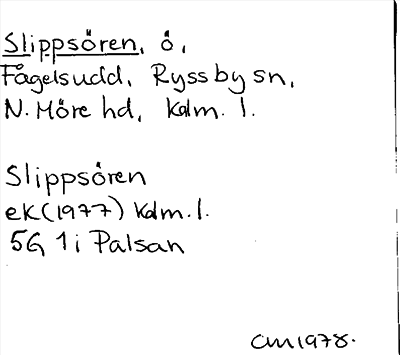 Slippsören, ö,
Fågelsudd, Ryssby sn,
N. Möre hd, Kalm. l.
Slippsören
ek(1977) Kalm.l.
5G 1i Pålsan
CM1978.